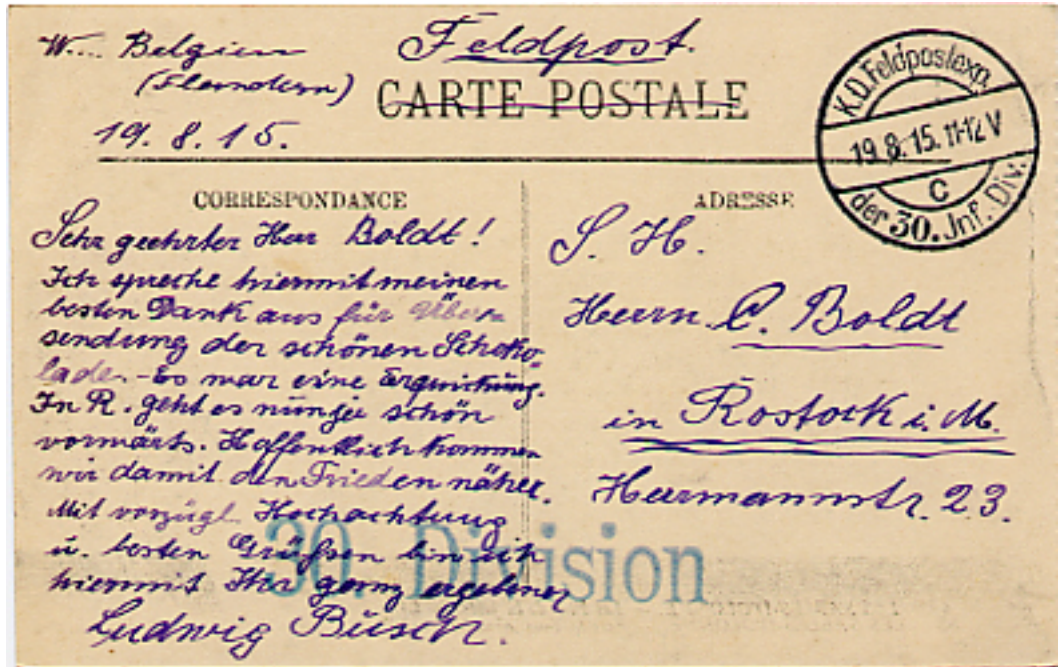 W... Belgien
(Flandern)
19. 8. 15.
Feldpost.
CARTE POSTALE
K.D.Feldpostexp.
19.8.15. 11-12 V
c
der 30. Inf. Div.
CORRESPONDANCE
Sehr geehrter Herr Boldt!
Ich spreche hiermit meinen
besten Dank aus für Über-
sendung der schönen Schoko-
lade. - Es war eine Erquickung.
In R. geht es nun ja schön
vorwärts. Hoffentlich kommen
wir damit den Frieden näher.
Mit vorzügl. Hochachtung
u. besten Grüßen bin ich
hiermit Ihr ganz ergebener
Ludwig Busch.
ADRESSE
S. H.
Herrn C. Boldt
in Rostock i. M.
Hermannstr. 23.
30. Division